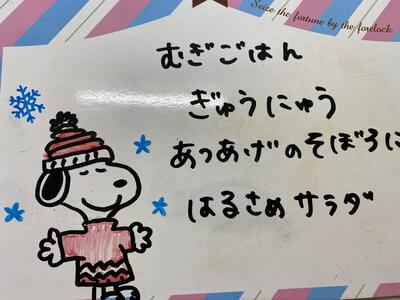 Seize the fortune by the forelock.
むぎごはん
ぎゅうにゅう
あつあげのそぼろに
はるさめサラダ